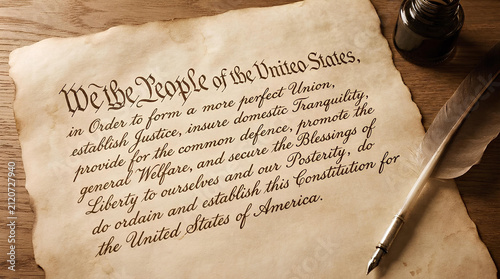 We the People of the United States,
in Order to form a more perfect Union,
establish Justice, insure domestic Tranquility,
provide for the common defence, promote the
general Welfare, and secure the Blessings of
Liberty to ourselves and our Posterity, do
do ordain and establish this Constitution for
the United States of America.
2120727940
Adobe Stock